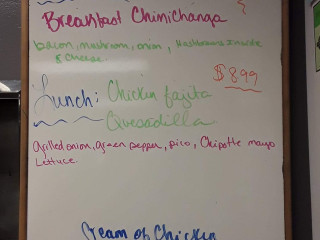 Breakfast Chimichanga
bacon, mushroom, onion, Hashbrowns Inside
& Cheese
$8.99
Lunch: Chicken fajita
Quesadilla
Grilled onion, green pepper, pico, Chipotle mayo
Lettuce
Cream of Chicken